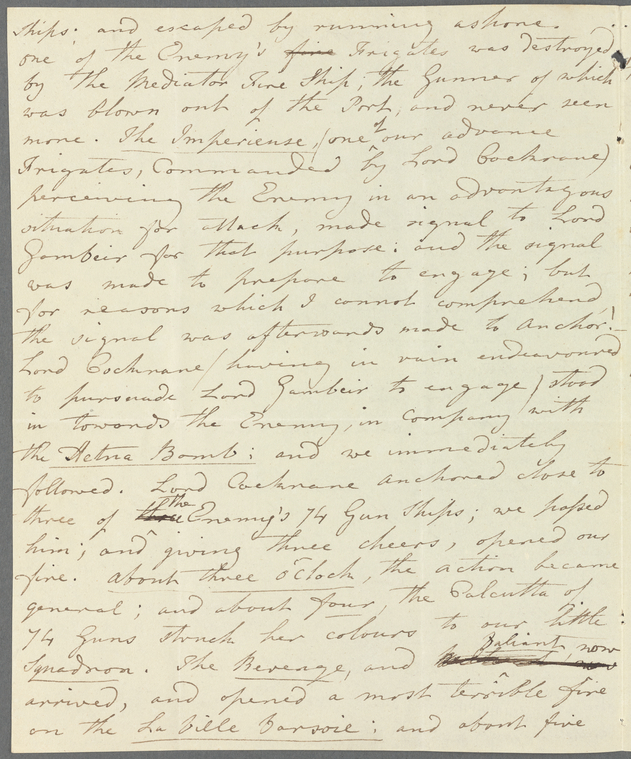 Ships; and escaped by running ashore.
one of the Enemy's fire Frigates was destroyed
by the Mediator Fire Ship, the Gunner of which
was blown out of the Port, and never seen
more. The Imperieuse, (one of our advance
Frigates, Commanded by Lord Cockrane)
perceiving the Enemy in an advantagous
situation for attack, made signal to Lord
Gambeir for that purpose: and the signal
was made to prepare to engage; but
for reasons which I cannot comprehend,
the signal was afterwards made to anchor!
Lord Cockrane (having in vain endeavoured
to pursuade Lord Gambeir to engage) stood
in towards the Enemy, in company with
the Aetna Bomb: and we immediately
followed. Lord Cockrane anchored close to
three of the Enemy's 74 Gun Ships; we passed
him; and giving three cheers, opened our
fire. about three o'Clock, the action became
general; and about four, the Calcutta of
74 Guns struck her colours to our little
Squadron. The Revenge, and Valiant, now
arrived, and opened a most terrible fire
on the La Ville Varsoie: and about five